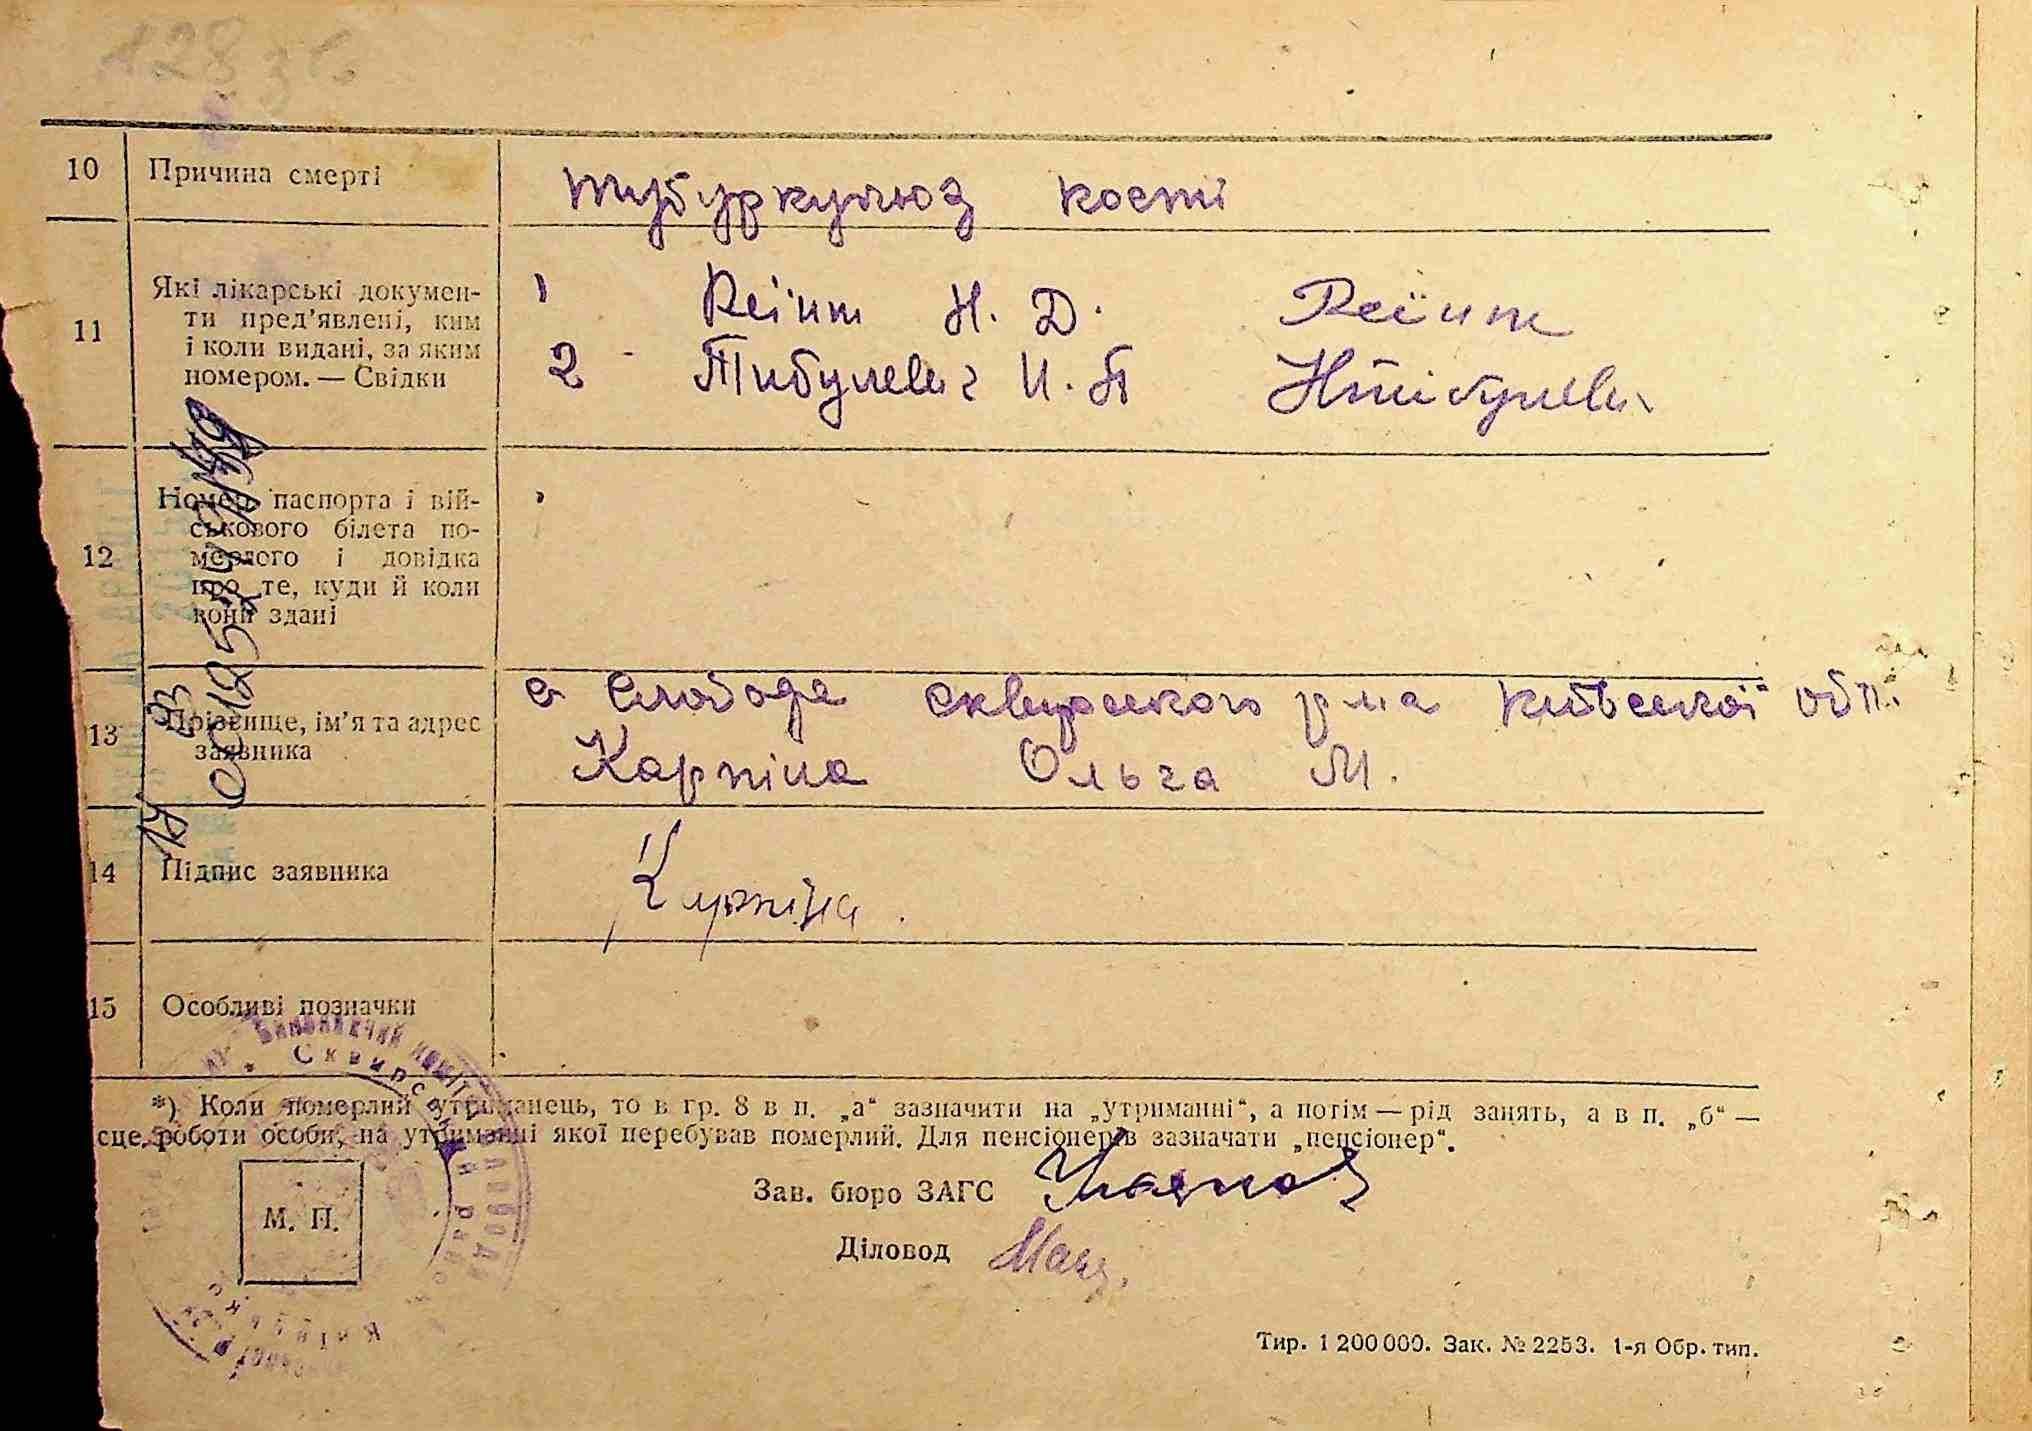 128 зв.
10 Причина смерті тубуркульоз кості
11 Які лікарські докумен-
ти пред'явлені, ким
і коли видані, за яким
номером. — Свідки
1 Рейнт Н. Д. Рейнт
2 Тибулевич И. П
12 Номер паспорта і вій-
ськового білета по-
мерлого і довідка
про те, куди й коли
вони здані
13 Прізвище, ім'я та адрес
заявника
с Слобода сквирского р на київської обл.
Карпіна Ольга М.
14 Підпис заявника Карпіна
15 Особливі позначки
*) Коли померлий утриманець, то в гр. 8 в п. „а“ зазначити на „утриманні“, а потім — рід занять, а в п. „б“ —
сце роботи особи, на утриманні якої перебував померлий. Для пенсіонерів зазначати „пенсіонер“.
Зав. бюро ЗАГС
М. П.
Діловод
Тир. 1 200 000. Зак. № 2253. 1-я Обр. тип.